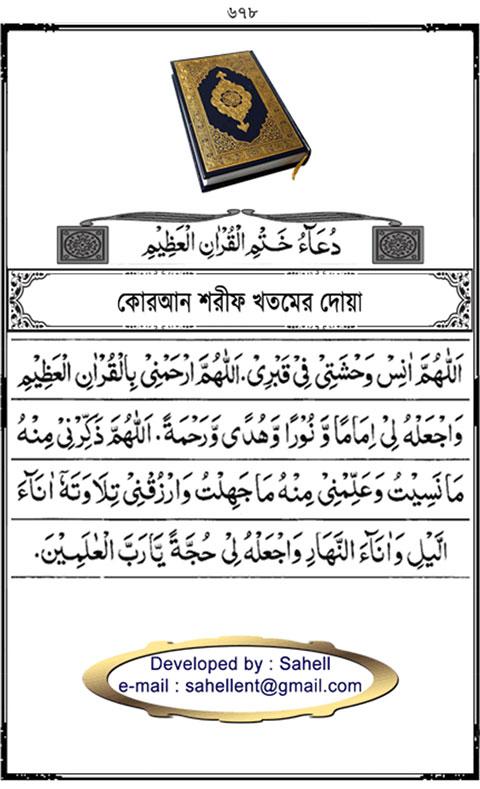 ৬৭৮
دُعَآءُ خَتْمِ الْقُرْاٰنِ الْعَظِيْمِ
কোরআন শরীফ খতমের দোয়া
اَللّٰهُمَّ اٰنِسْ وَحْشَتِىْ فِىْ قَبْرِىْ. اَللّٰهُمَّ ارْحَمْنِىْ بِالْقُرْاٰنِ الْعَظِيْمِ
وَاجْعَلْهُ لِىْ اِمَامًا وَّ نُوْرًا وَّهُدًى وَّرَحْمَةً. اَللّٰهُمَّ ذَكِّرْنِىْ مِنْهُ
مَا نَسِيْتُ وَعَلِّمْنِىْ مِنْهُ مَا جَهِلْتُ وَارْزُقْنِىْ تِلَاوَتَهٗ اٰنَآءَ
الَّيْلِ وَاٰنَآءَ النَّهَارِ وَاجْعَلْهُ لِىْ حُجَّةً يَّارَبَّ الْعٰلَمِيْنَ.
Developed by : Sahell
e-mail : sahellent@gmail.com